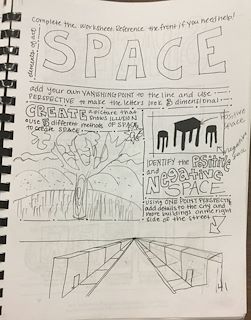 Complete the Worksheet. Reference the front if you need help!
elements of art
SPACE
add your own VANISHING POINT to the line and use
PERSPECTIVE to make the letters look 3 dimensional
CREATE a scene that
shows ILLUSION
use 3 different methods OF SPACE
to create SPACE
Positive
Space
negative
space
IDENTIFY the POSITIVE
and
NEGATIVE
SPACE
USING ONE POINT PERSPECTIVE
add details to the city and
more buildings on the right
side of the street